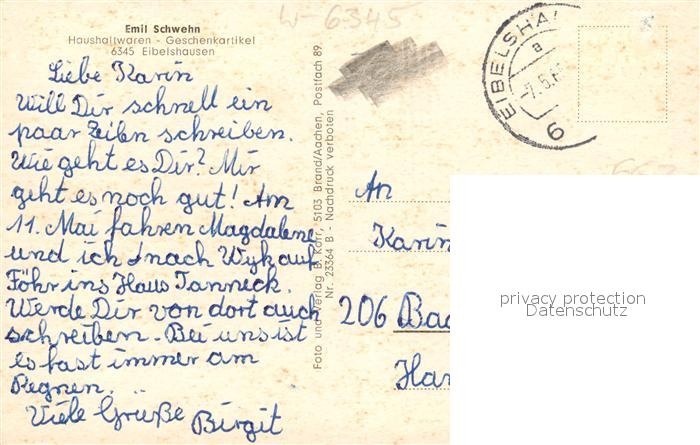 W-6345
Emil Schwehn
Haushaltwaren - Geschenkartikel
6345 Eibelshausen
Liebe Karin
Will Dir schnell ein
paar Zeilen schreiben.
Wie geht es Dir? Mir
geht es noch gut! Am
11. Mai fahren Magdalene
und ich nach Wyk auf
Föhr ins Haus Tanneck.
Werde Dir von dort auch
schreiben. Bei uns ist
es fast immer am
Regnen.
Viele Grüße Birgit
Foto und Verlag B. Korr, 5103 Brand/Aachen, Postfach 89
Nr. 23364 B - Nachdruck verboten
EIBELSHA
a
-7.5.6
An
Karin
206 Bad
Ham
privacy protection
Datenschutz